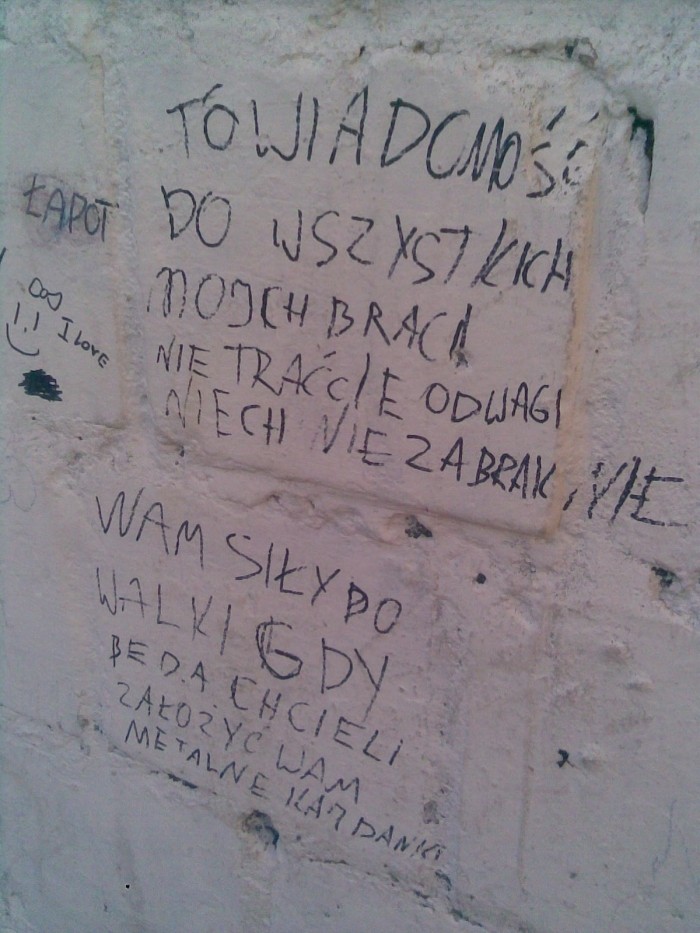 TO WIADOMOŚĆ
DO WSZYSTKICH
MOJCH BRACI
NIE TRAĆCIE ODWAGI
NIECH NIE ZABRAKNIE
WAM SIŁY DO
WALKI GDY
BEDA CHCIELI
ZAŁOZYĆ WAM
METALNE KAJDANKI
ŁAPOT
I LOVE